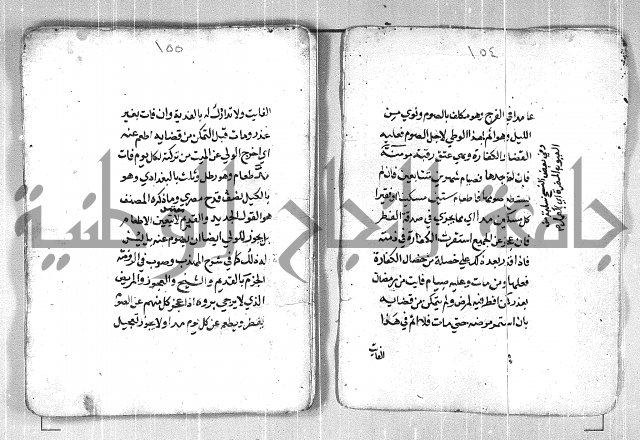 ١٥٤
عامدا في الفرج وهو مكلف بالصوم ونوي من
الليل وهو اثم بهذا الوطي لاجل الصوم فعليه
القضا والكفارة وهي عتق رقبة مومنة
فان لم يجدها فصيام شهرين متتابعين فان لم
يستطع صومهما فاطعام ستين مسكينا او فقيرا
كل مسكين مد اي مما يجزي في صدقة الفطر
فان عجز عن الجميع استقرت الكفارة في ذمته
فاذا قدر بعد ذلك على خصلة من خصال الكفارة
فعلها ومن مات وعليه صيام فايت من رمضان
بعذر كمن افطر فيه لمرض ولم يتمكن من قضايه
بان استمر مرضه حتى مات فلا اثم في هذا
الفايت
١٥٥
الفايت ولا تدارك له بالفدية وان فات بغير
عذر ومات قبل التمكن من قضايه اطعم عنه
اي اخرج الولي عن الميت من تركته لكل يوم فات
مد طعام وهو رطل وثلث بالبغدادي وهو
بالكيل نصف قدح مصري وما ذكره المصنف
هو القول الجديد والقديم لا يتعين الاطعام
بل يجوز للولي ايضا ان يصوم عنه بل يسن
له ذلك كما في شرح المهذب وصوب في الروضة
الجزم بالقديم والشيخ والعجوز والمريض
الذي لا يرجي بروه اذا عجز كل منهم عن الصوم
يفطر ويطعم عن كل يوم مدا ولا يجوز تعجيل
جامعة النجاح الوطنية